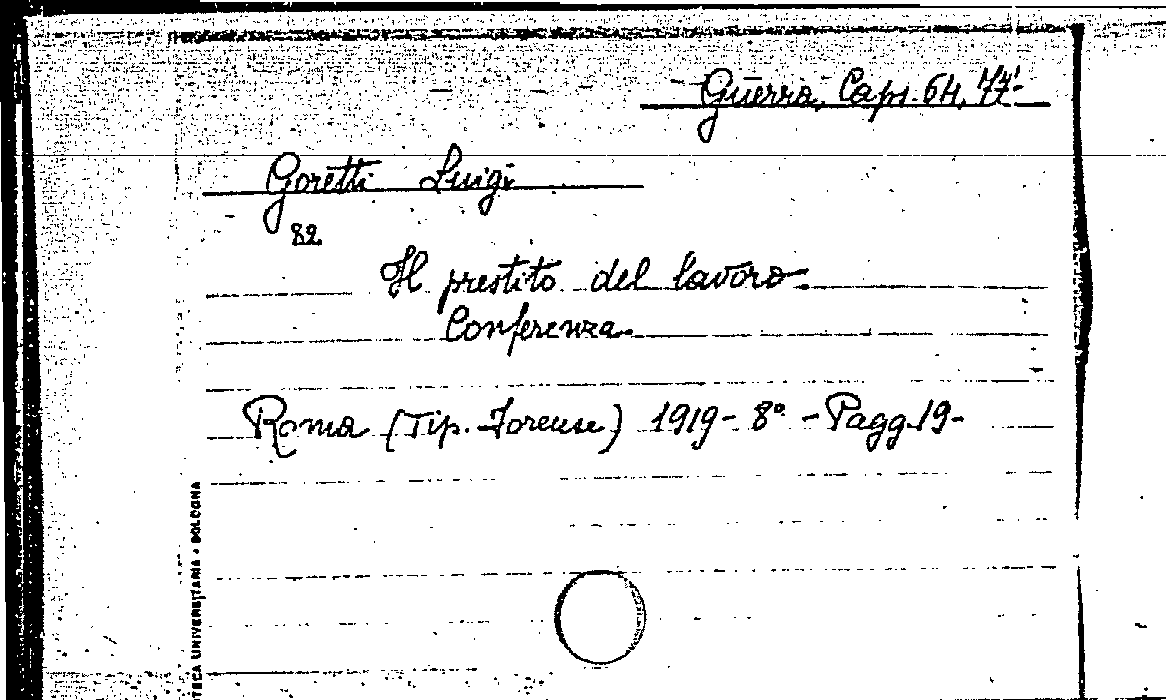 Guerra, Caps. 64, 44'-
Goretti Luigi
82.
Il prestito del lavoro.
Conferenza.
Roma (Tip. Forense) 1919 - 8° - Pagg. 19 -
TECA UNIVERSITARIA • BOLOGNA